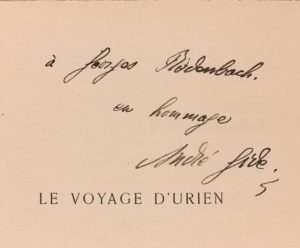 à Georges Rodenbach.
en hommage
André Gide.
LE VOYAGE D'URIEN